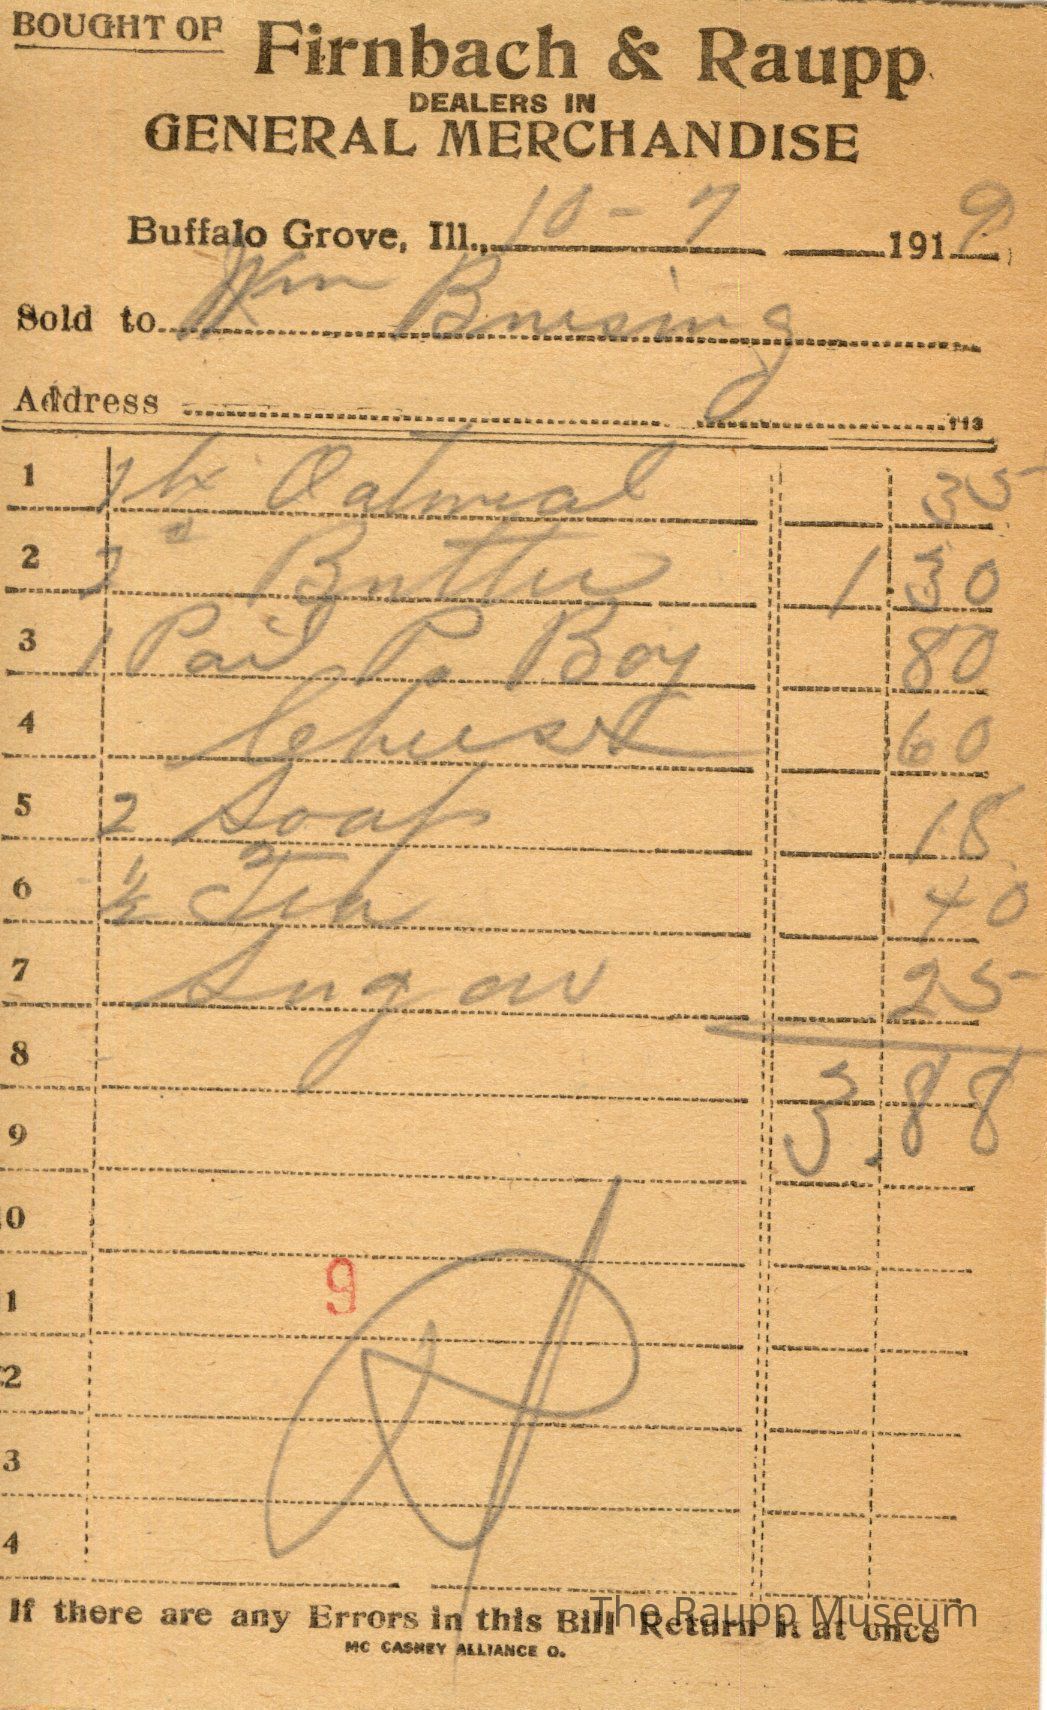 BOUGHT OF Firnbach & Raupp
DEALERS IN
GENERAL MERCHANDISE
Buffalo Grove, Ill., 10 - 7 1919
Sold to Wm Bruesing
Address
113
1 1 bx Oatmeal 35
2 2 Butter 1 30
3 1 Pail Po Boy 80
4 Cheese 60
5 2 Soap 18
6 1/2 Tea 40
7 Sugar 25
8 3.88
9
10
9
1
2
3
4
If there are any Errors in this Bill Return it at once
MC CASKEY ALLIANCE O.
The Raupp Museum